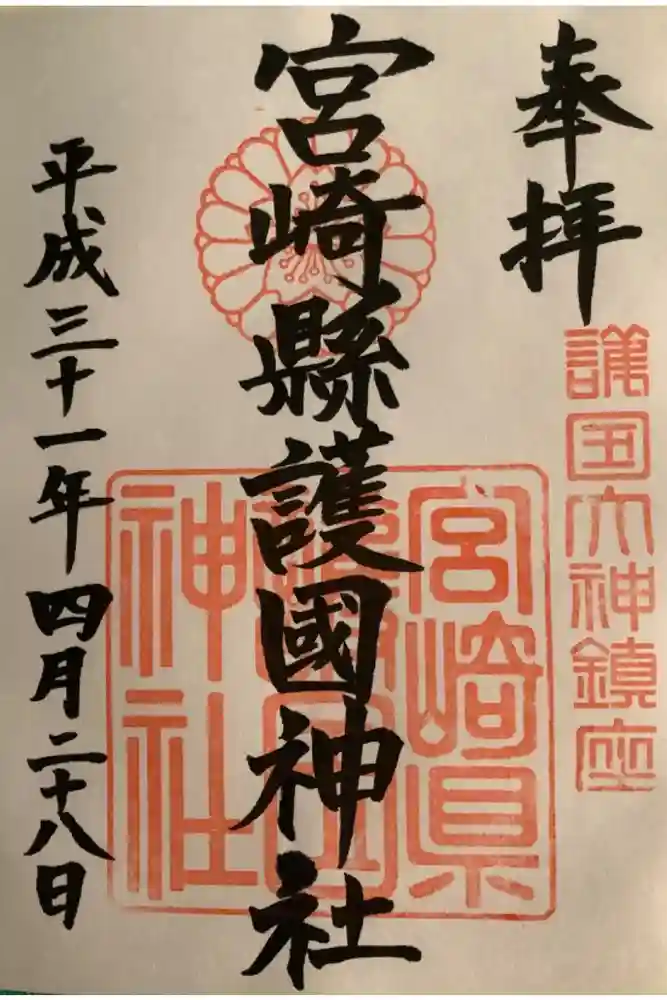 奉拝
護国大神鎮座
宮崎縣護國神社
宮崎県
護国
神社
平成三十一年四月二十八日